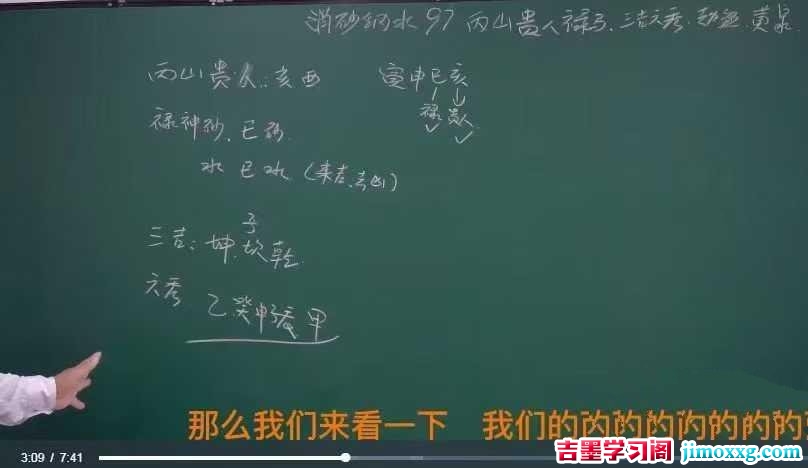 消砂纳水97 丙山贵人禄马.三吉六秀.劫煞.黄泉
丙山贵人:亥酉 寅申巳亥
禄 贵人
禄神砂.巳砂
水 巳水(来吉.去凶)
子
三吉:坤.坎.乾
六秀 乙癸申 甲
那么我们来看一下 我们的丙的的内的的的
3:09 / 7:41
吉墨学习阁 jimoxxg.com